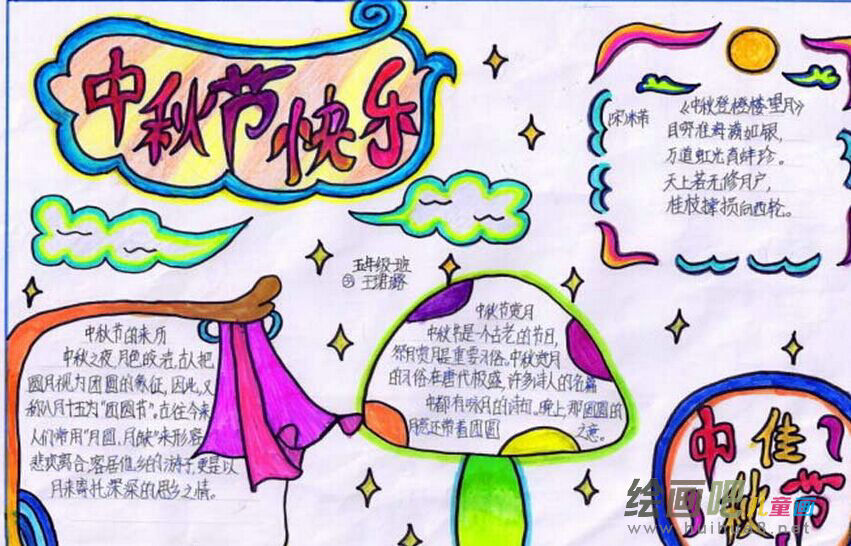 中秋节快乐
宋 米芾
《中秋登楼望月》
目穷淮海满如银，
万道虹光育蚌珍。
天上若无修月户，
桂枝撑损向西轮。
五年级一班
王珺潞
中秋节的来历
中秋之夜，月色皎洁，古人把
圆月视为团圆的象征，因此，又
称八月十五为“团圆节”。古往今来
人们常用“月圆、月缺”来形容
悲欢离合，客居他乡的游子，更是以
月来寄托深深的思乡之情。
中秋节赏月
中秋节是一个古老的节日，
祭月赏月是重要习俗。中秋赏月
的习俗在唐代极盛，许多诗人的名篇
中都有咏月的诗句，晚上那圆圆的
月意还带着团圆之意。
中秋
佳节
绘画吧 儿童画
www.huihua8.net